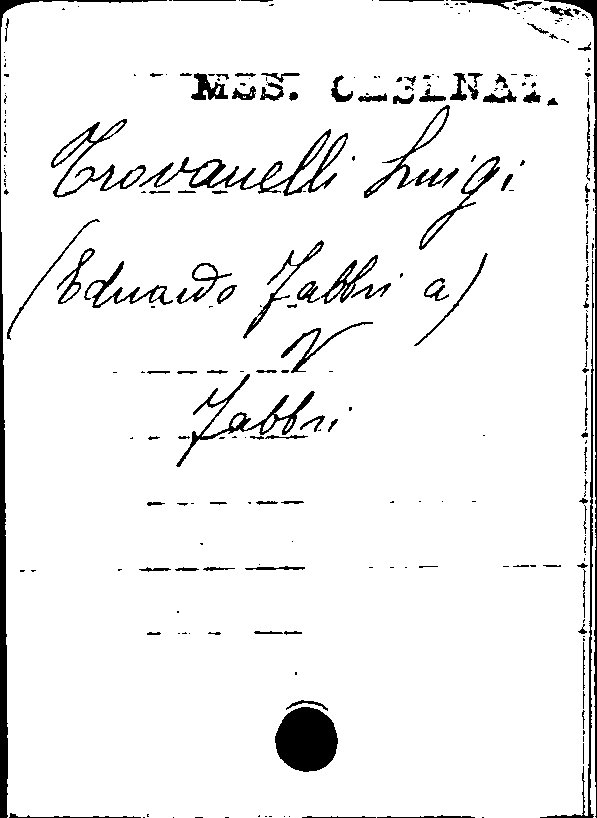 MSS. CESENAT.
Trovanelli Luigi
(Eduardo Fabbri a)
V
Fabbri